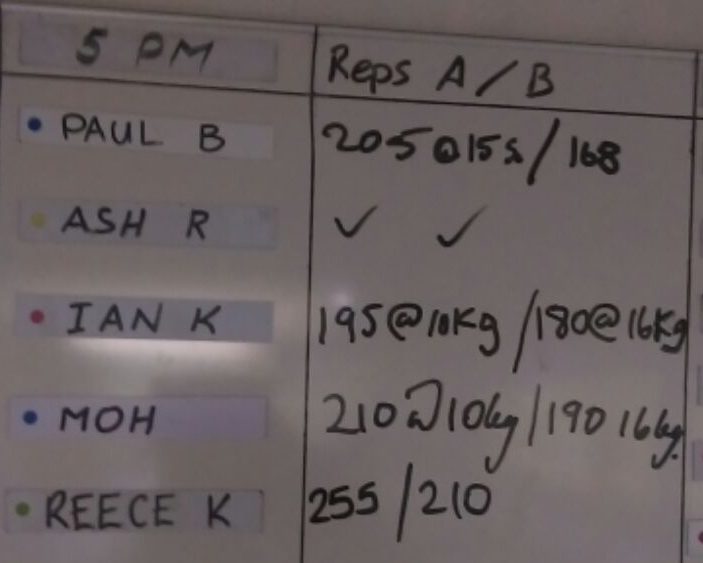 5 PM Reps A / B
PAUL B 205 @15s / 168
ASH R ✓ ✓
IAN K 195@10Kg /180@16Kg
MOH 210 @10kg/190 16kg
REECE K 255 /210